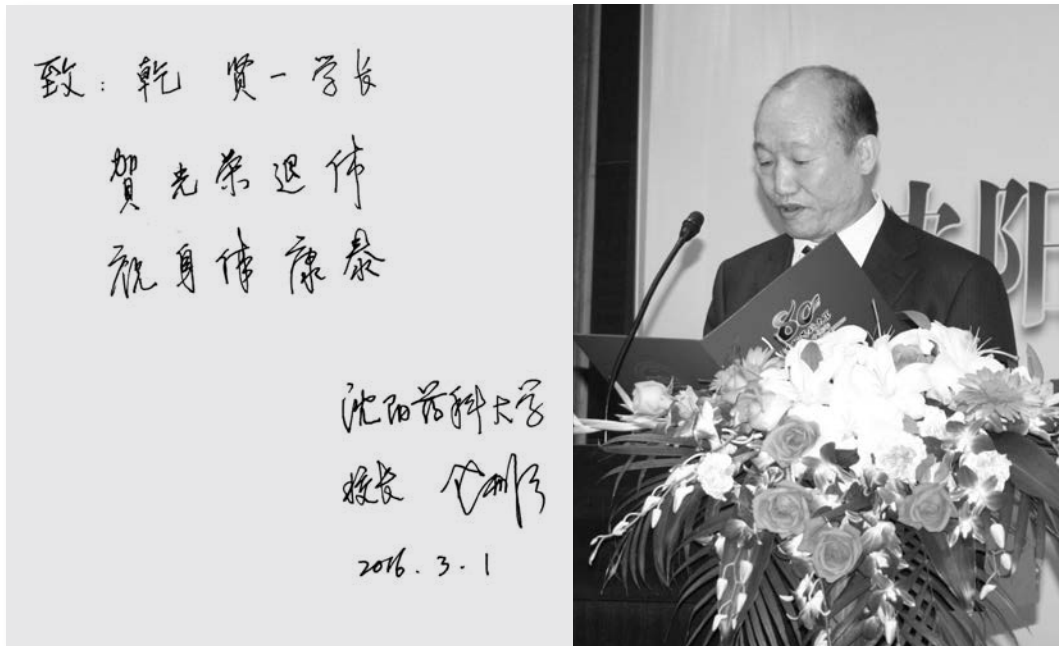 致：乾 贤一学长
賀光荣退休
祝身体康泰
沈阳药科大学
校长
2016.3.1
阳
80